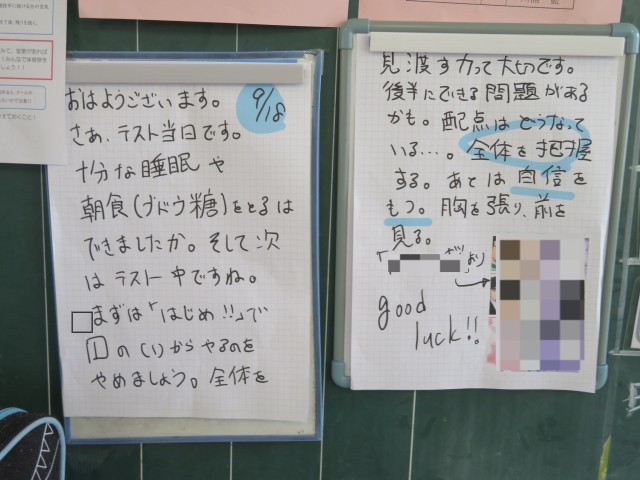 おはようございます。
9/18
さあ、テスト当日です。
十分な睡眠や
朝食(ブドウ糖)をとるは
できましたか。そして次
はテスト中ですね。
まずは「はじめ!!」で
1の(1)からやるのを
やめましょう。全体を
見渡す力って大切です。
後半にできる問題がある
かも。配点はどうなって
いる…。全体を把握
する。あとは自信を
もつ。胸を張り、前を
見る。
より
good
luck!!